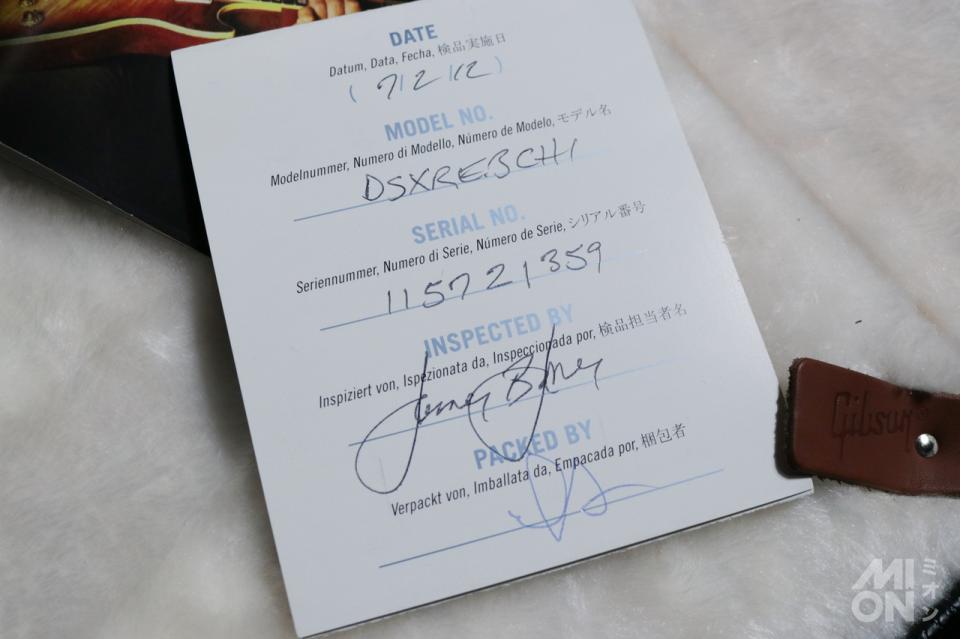 DATE
Datum, Data, Fecha, 検品実施日
( 7/2/12 )
MODEL NO.
Modelnummer, Numero di Modello, Número de Modelo, モデル名
DSXREBCH1
SERIAL NO.
Seriennummer, Numero di Serie, Número de Serie, シリアル番号
115721359
INSPECTED BY
Inspiziert von, Ispezionata da, Inspeccionada por, 検品担当者名
PACKED BY
Verpackt von, Imballata da, Empacada por, 梱包者
Gibson
MION
ミオン